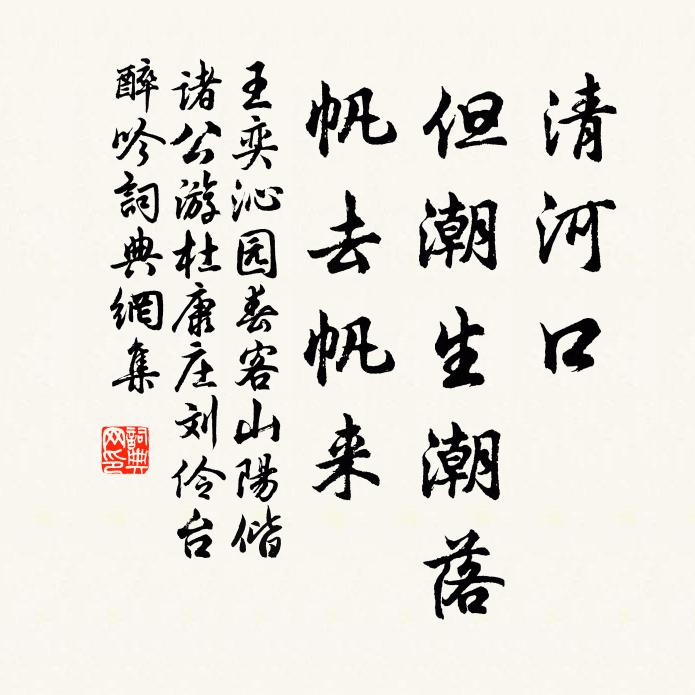 清河口
但潮生潮落
帆去帆来
王奕沁园春客山陽偕
诸公游杜康庄刘伶台
醉吟詞典網集
詞典
网印